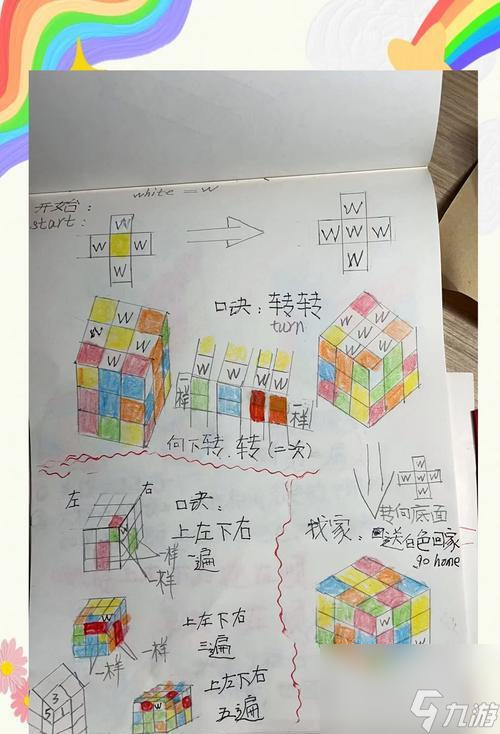 white = W
开始：
start：
W
W W
W
W
W W W
W
口诀：转转
turn
W
W
W
W
W
W
W
W
W
W
W W W W
一样
一样
向下转、转（二次）
W
W W W
W
转向底面
找家：送白色回家
go home
左 右
口诀：
上左下右
一遍
W
一样
一样
W
上左下右
三遍
一样 一样
上左下右
五遍
W
W
3
5 1
九游